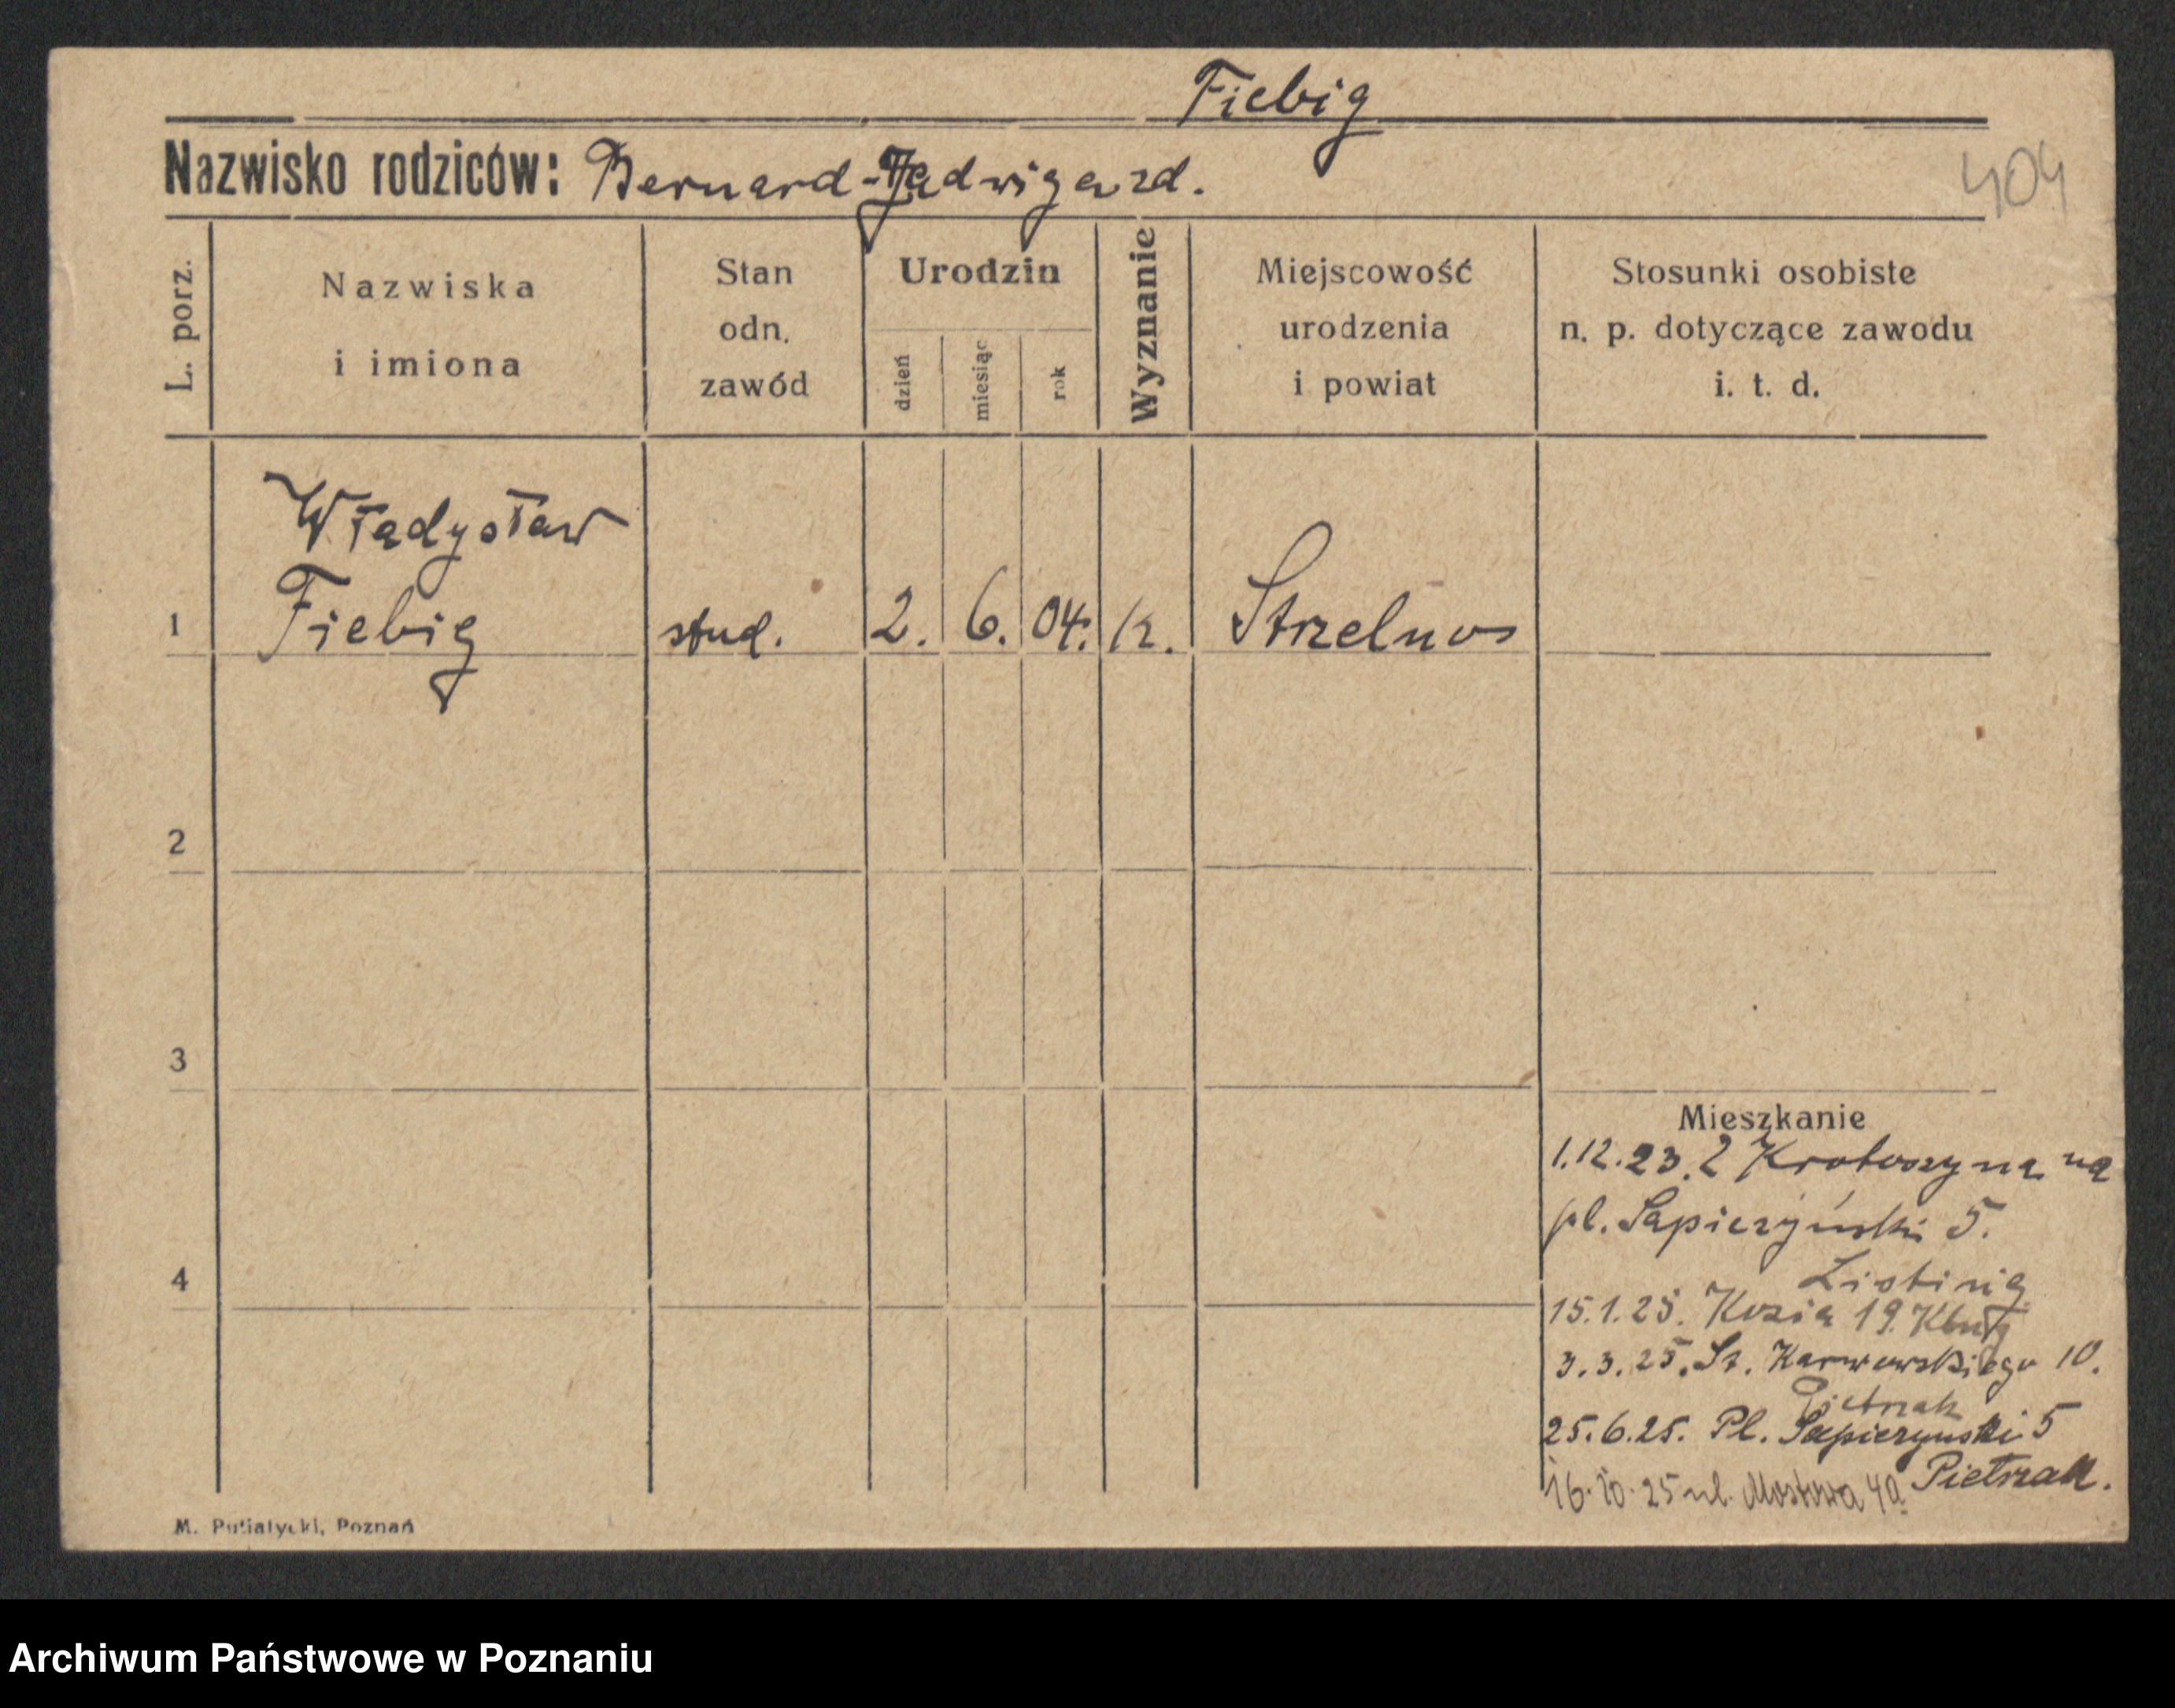 Fiebig
Nazwisko rodziców: Bernard - Jadwiga zd.
404
L. porz.
Nazwiska
i imiona
Stan
odn.
zawód
Urodzin
dzień
miesiąc
rok
Wyznanie
Miejscowość
urodzenia
i powiat
Stosunki osobiste
n. p. dotyczące zawodu
i. t. d.
Władysław
1 Fiebig stud. 2. 6. 04. k. Strzelno
2
3
Mieszkanie
1.12.23. Z Krotoszyna na
pl. Sapieżyński 5.
4
15.1.25. Kozia 19.
3.3.25. Sz. Karwowskiego 10.
Pietrzak
25.6.25. Pl. Sapieżynski 5
Pietrzak.
16.10.25 ul. Mostowa 4a
M. Putiatycki, Poznań
Archiwum Państwowe w Poznaniu